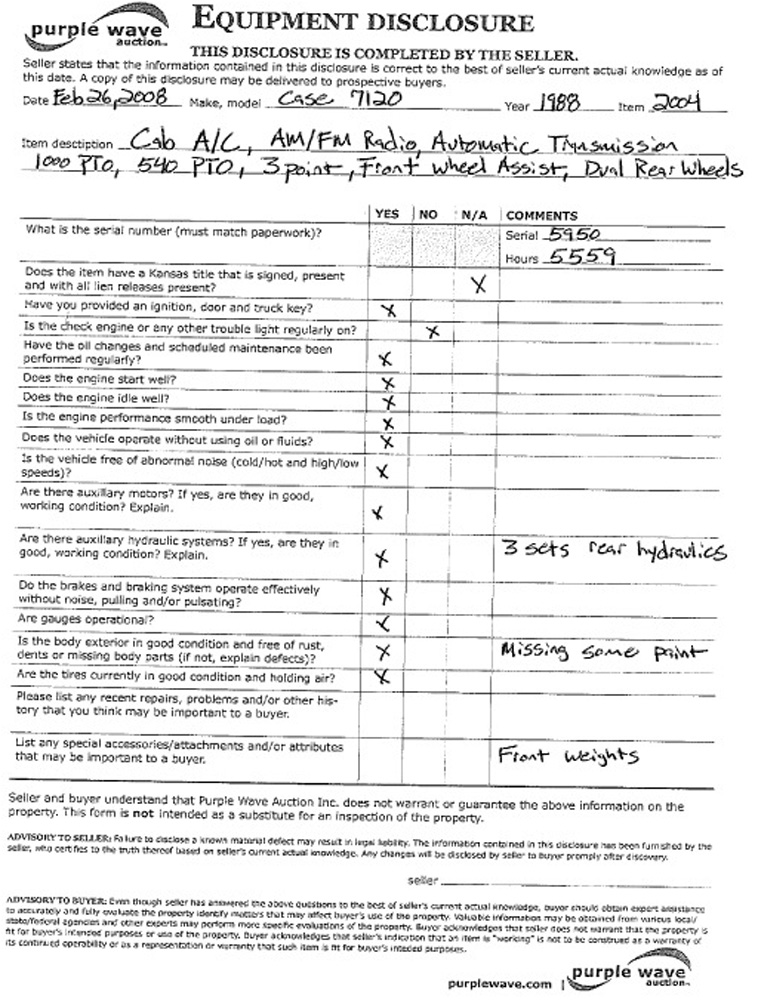 purple wave
auction™
EQUIPMENT DISCLOSURE
THIS DISCLOSURE IS COMPLETED BY THE SELLER.
Seller states that the information contained in this disclosure is correct to the best of seller's current actual knowledge as of
this date. A copy of this disclosure may be delivered to prospective buyers.
Date Feb 26, 2008 Make, model Case 7120 Year 1988 Item 2004
Item desctiption Cab A/C, AM/FM Radio, Automatic Trnsmission
1000 PTO, 540 PTO, 3 point, Front Wheel Assist, Dual Rear Wheels
YES NO N/A COMMENTS
What is the serial number (must match paperwork)? Serial 5950
Hours 5559
Does the item have a Kansas title that is signed, present
and with all lien releases present? X
Have you provided an ignition, door and truck key? X
Is the check engine or any other trouble light regularly on? X
Have the oil changes and scheduled maintenance been
performed regularly? X
Does the engine start well? X
Does the engine idle well? X
Is the engine performance smooth under load? X
Does the vehicle operate without using oil or fluids? X
Is the vehicle free of abnormal noise (cold/hot and high/low
speeds)? X
Are there auxillary motors? If yes, are they in good,
working condition? Explain. X
Are there auxillary hydraulic systems? If yes, are they in
good, working condition? Explain. X 3 sets rear hydraulics
Do the brakes and braking system operate effectively
without noise, pulling and/or pulsating? X
Are gauges operational? X
Is the body exterior in good condition and free of rust,
dents or missing body parts (if not, explain defects)? X Missing some paint
Are the tires currently in good condition and holding air? X
Please list any recent repairs, problems and/or other his-
tory that you think may be important to a buyer.
List any special accessories/attachments and/or attributes
that may be important to a buyer. Front Weights
Seller and buyer understand that Purple Wave Auction Inc. does not warrant or guarantee the above information on the
property. This form is not intended as a substitute for an inspection of the property.
ADVISORY TO SELLER: Failure to disclose a known material defect may result in legal liability. The information contained in this disclosure has been furnished by the
seller, who certifies to the truth thereof based on seller's current actual knowledge. Any changes will be disclosed by seller to buyer promply after discovery.
seller
ADVISORY TO BUYER: Even though seller has answered the above questions to the best of seller's current actual knowledge, buyer should obtain expert assistance
to accurately and fully evaluate the property identify matters that may affect buyer's use of the property. Valuable information may be obtained from various local/
state/federal agencies and other experts may perform more specific evaluations of the property. Buyer acknowledges that seller does not warrant that the property is
fit for buyer's intended purposes or use of the property. Buyer acknowledges that seller's indication that an item is "working" is not to be construed as a warranty of
its continued operability or as a representation or warranty that such item is fit for buyer's inteded purposes.
purplewave.com | purple wave
auction™